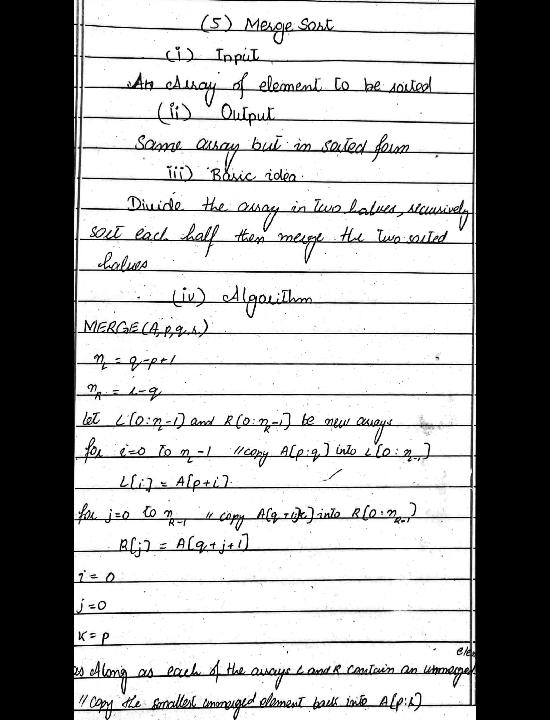 (5) Merge Sort
(i) Input
An Array of element to be sorted
(ii) Output
Same array but in sorted form
iii) Basic idea.
Divide the array in two halves, recursively
sort each half then merge the two sorted
halves
(iv) Algorithm
MERGE(A,p,q,r)
n_L = q-p+1
n_R = r-q
let L[0:n_L-1] and R[0:n_R-1] be new arrays
for i=0 to n_L-1 //copy A[p:q] into L[0:n_L-1]
L[i] = A[p+i]
for j=0 to n_R-1 // copy A[q+1:r] into R[0:n_R-1]
R[j] = A[q+j+1]
i = 0
j=0
K = p
ele
as Along as each of the arrays L and R contain an unmerged
// Copy the smallest unmerged element back into A[p:r]